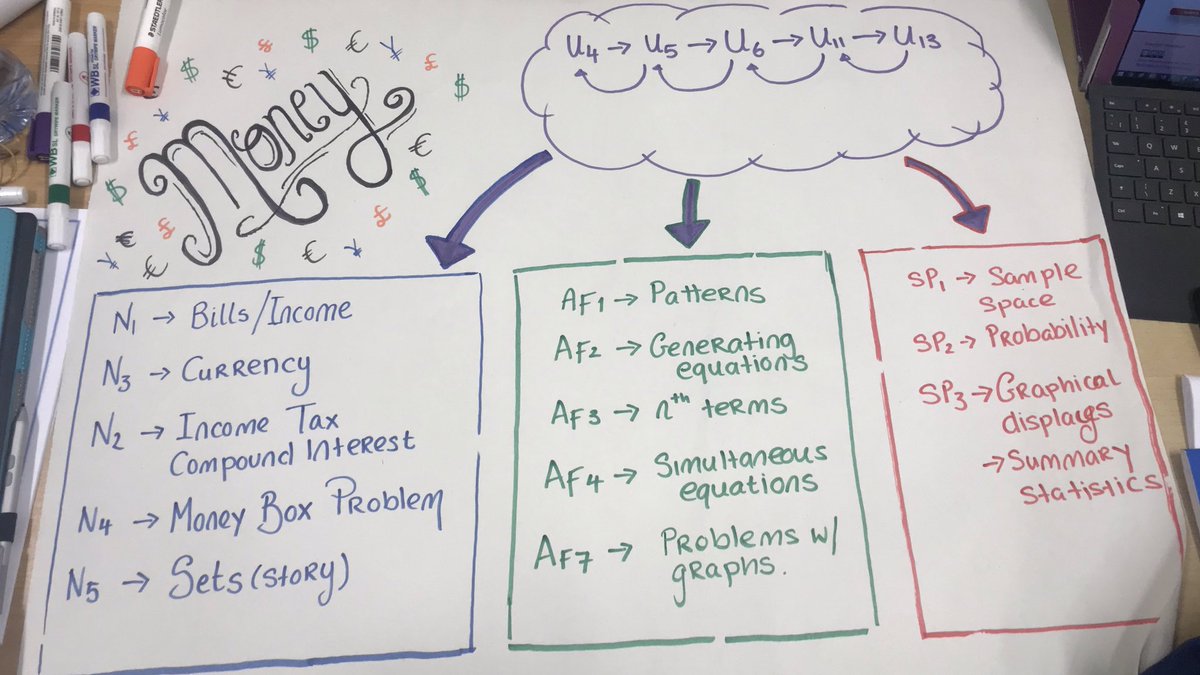 Money
U4 → U5 → U6 → U11 → U13
N1 → Bills/Income
N3 → Currency
N2 → Income Tax
Compound Interest
N4 → Money Box Problem
N5 → Sets (story)
AF1 → Patterns
AF2 → Generating
equations
AF3 → nth terms
AF4 → Simultaneous
equations
AF7 → Problems w/
graphs.
SP1 → Sample
space
SP2 → Probability
SP3 → Graphical
displays
→ Summary
statistics
STAEDTLER
WBSL
WBSL